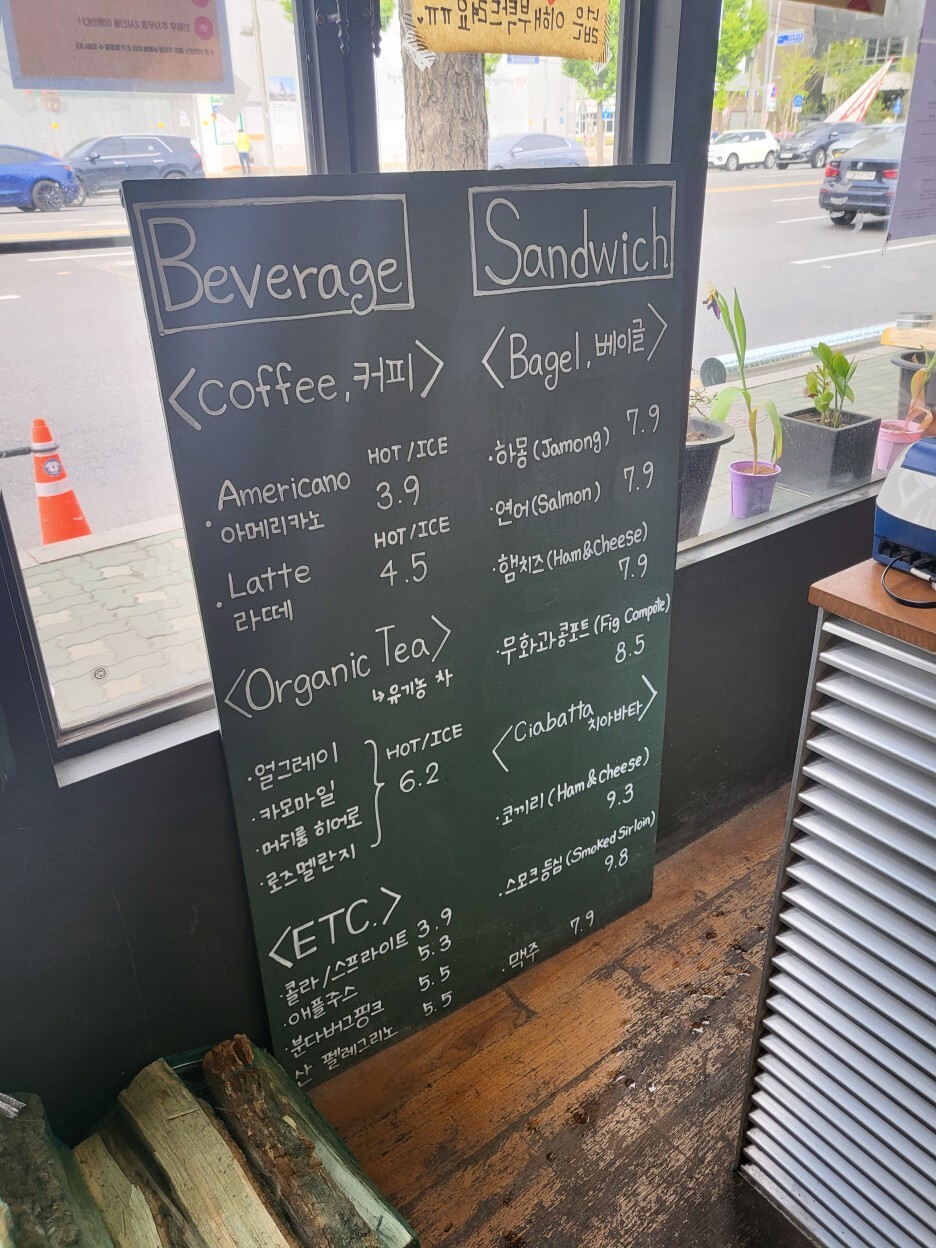 넓은 이해 부탁드려요 ㅠㅠ
Beverage
<Coffee, 커피>
HOT/ICE
· Americano 3.9
아메리카노
HOT/ICE
· Latte 4.5
라떼
<Organic Tea>
↳유기농 차
· 얼그레이
· 카모마일
· 머쉬룸 히어로
· 로즈멜란지
HOT/ICE
6.2
<ETC.>
· 콜라/스프라이트 3.9
· 애플주스 5.3
· 분다버그핑크 5.5
산 펠레그리노 5.5
Sandwich
<Bagel, 베이글>
· 하몽 (Jamong) 7.9
· 연어 (Salmon) 7.9
· 햄치즈 (Ham&Cheese)
7.9
· 무화과콩포트 (Fig Compote)
8.5
<Ciabatta
치아바타>
· 코끼리 (Ham&Cheese)
9.3
· 스모크등심 (Smoked Sirloin)
9.8
· 맥주 7.9